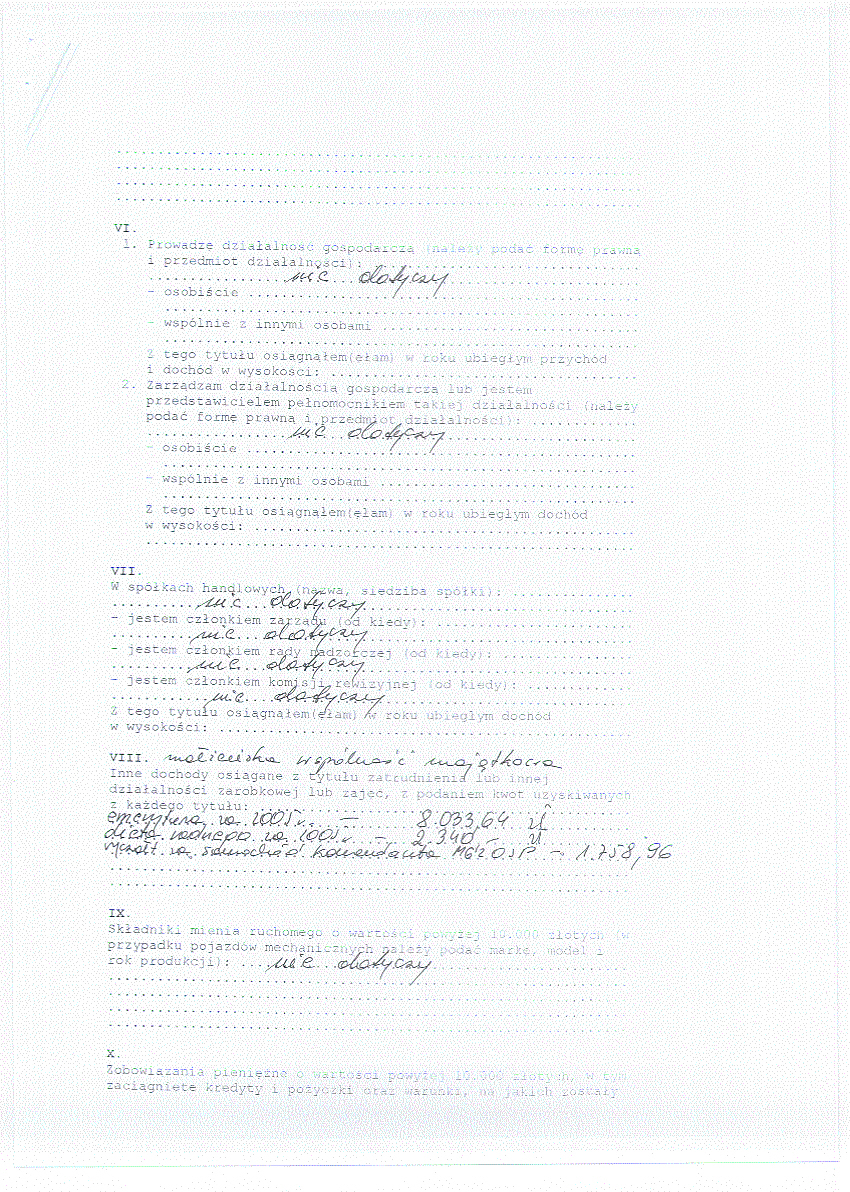 VI.
1. Prowadzę działalność gospodarczą (należy podać formę prawną
i przedmiot działalności):
nie dotyczy
- osobiście
- wspólnie z innymi osobami
Z tego tytułu osiągnąłem(ęłam) w roku ubiegłym przychód
i dochód w wysokości:
2. Zarządzam działalnością gospodarczą lub jestem
przedstawicielem pełnomocnikiem takiej działalności (należy
podać formę prawną i przedmiot działalności):
nie dotyczy
- osobiście
- wspólnie z innymi osobami
Z tego tytułu osiągnąłem(ęłam) w roku ubiegłym dochód
w wysokości:
VII.
W spółkach handlowych (nazwa, siedziba spółki):
nie dotyczy
- jestem członkiem zarządu (od kiedy):
nie dotyczy
- jestem członkiem rady nadzorczej (od kiedy):
nie dotyczy
- jestem członkiem komisji rewizyjnej (od kiedy):
nie dotyczy
Z tego tytułu osiągnąłem(ęłam) w roku ubiegłym dochód
w wysokości:
VIII. małżeńska wspólność majątkowa
Inne dochody osiągane z tytułu zatrudnienia lub innej
działalności zarobkowej lub zajęć, z podaniem kwot uzyskiwanych
z każdego tytułu:
emerytura za 2005 r. — 8.033,64 zł
dieta radnego za 2005 r. – 2.340,- zł
ryczałt za samochód komendanta MG Z OSP – 1.758,96
IX.
Składniki mienia ruchomego o wartości powyżej 10.000 złotych (w
przypadku pojazdów mechanicznych należy podać markę, model i
rok produkcji): nie dotyczy
X.
Zobowiązania pieniężne o wartości powyżej 10.000 złotych, w tym
zaciągnięte kredyty i pożyczki oraz warunki, na jakich zostały